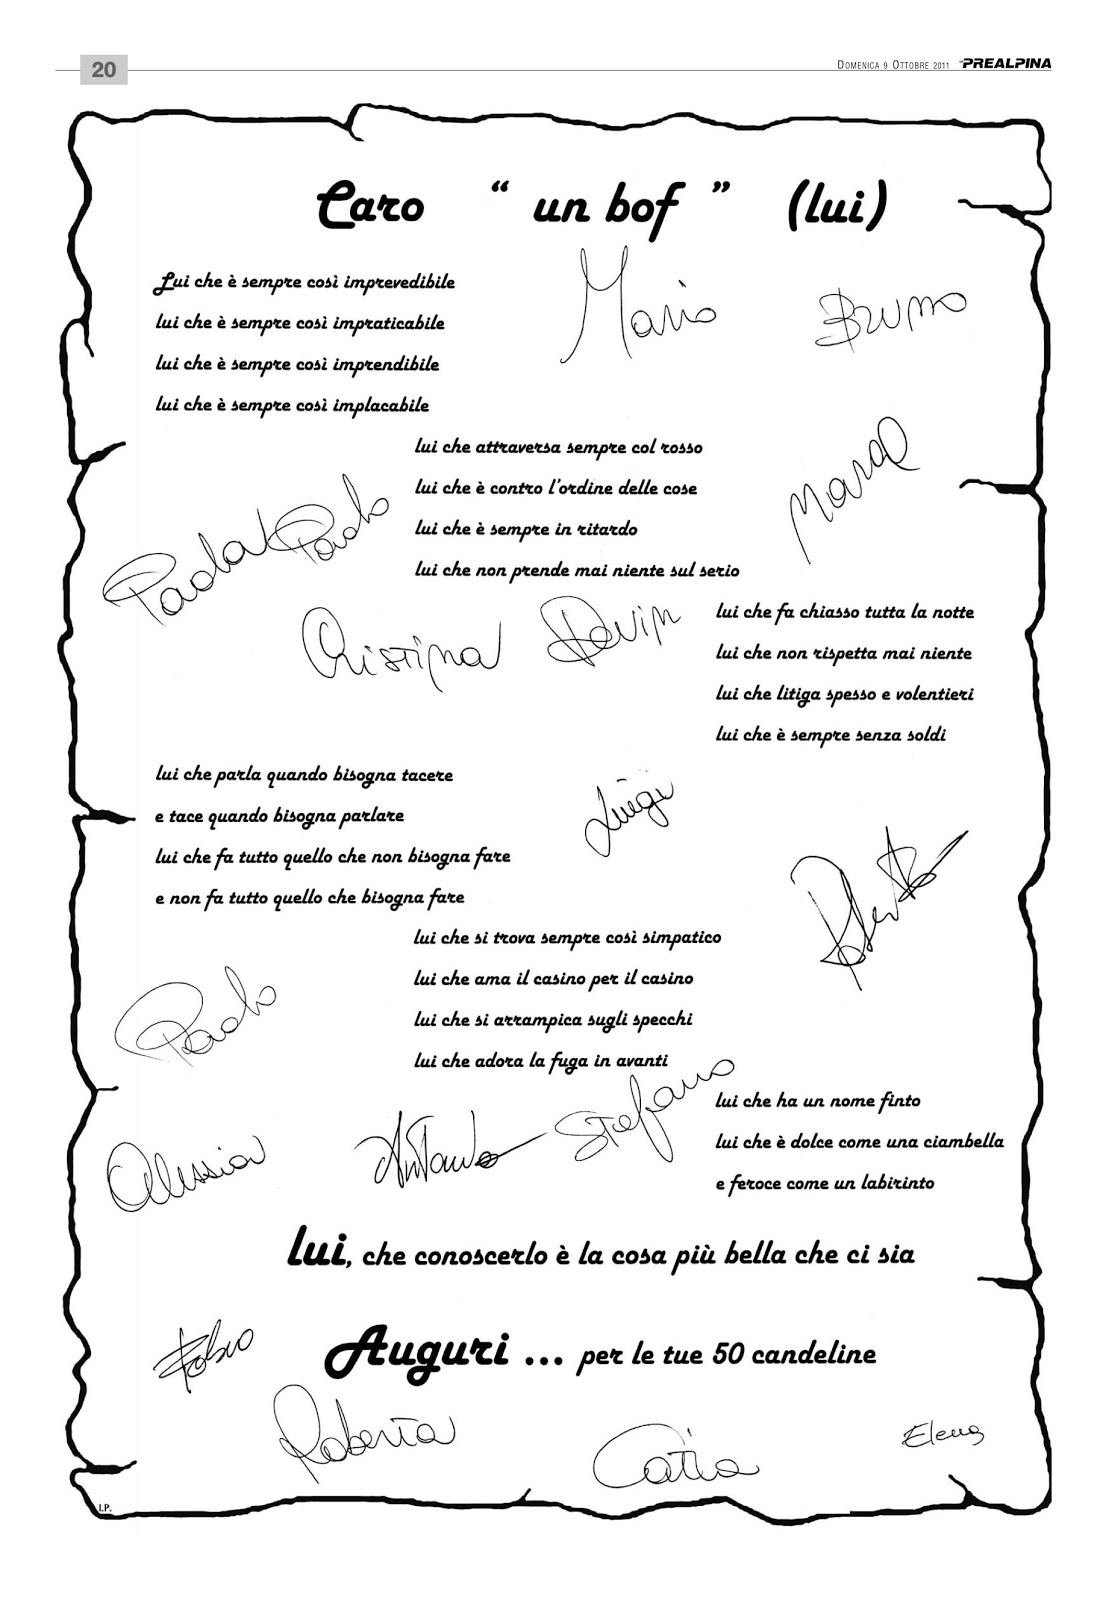 20
DOMENICA 9 OTTOBRE 2011 la PREALPINA
Caro " un bof " (lui)
Lui che è sempre così imprevedibile
lui che è sempre così impraticabile
lui che è sempre così imprendibile
lui che è sempre così implacabile
Mario
Bruno
lui che attraversa sempre col rosso
lui che è contro l'ordine delle cose
lui che è sempre in ritardo
lui che non prende mai niente sul serio
Paola
Paolo
Cristina
lui che fa chiasso tutta la notte
lui che non rispetta mai niente
lui che litiga spesso e volentieri
lui che è sempre senza soldi
lui che parla quando bisogna tacere
e tace quando bisogna parlare
lui che fa tutto quello che non bisogna fare
e non fa tutto quello che bisogna fare
Luigi
lui che si trova sempre così simpatico
lui che ama il casino per il casino
lui che si arrampica sugli specchi
lui che adora la fuga in avanti
Paolo
Stefano
Alessia
lui che ha un nome finto
lui che è dolce come una ciambella
e feroce come un labirinto
lui, che conoscerlo è la cosa più bella che ci sia
Auguri ... per le tue 50 candeline
Fabio
Roberta
Catia
Elena
I.P.